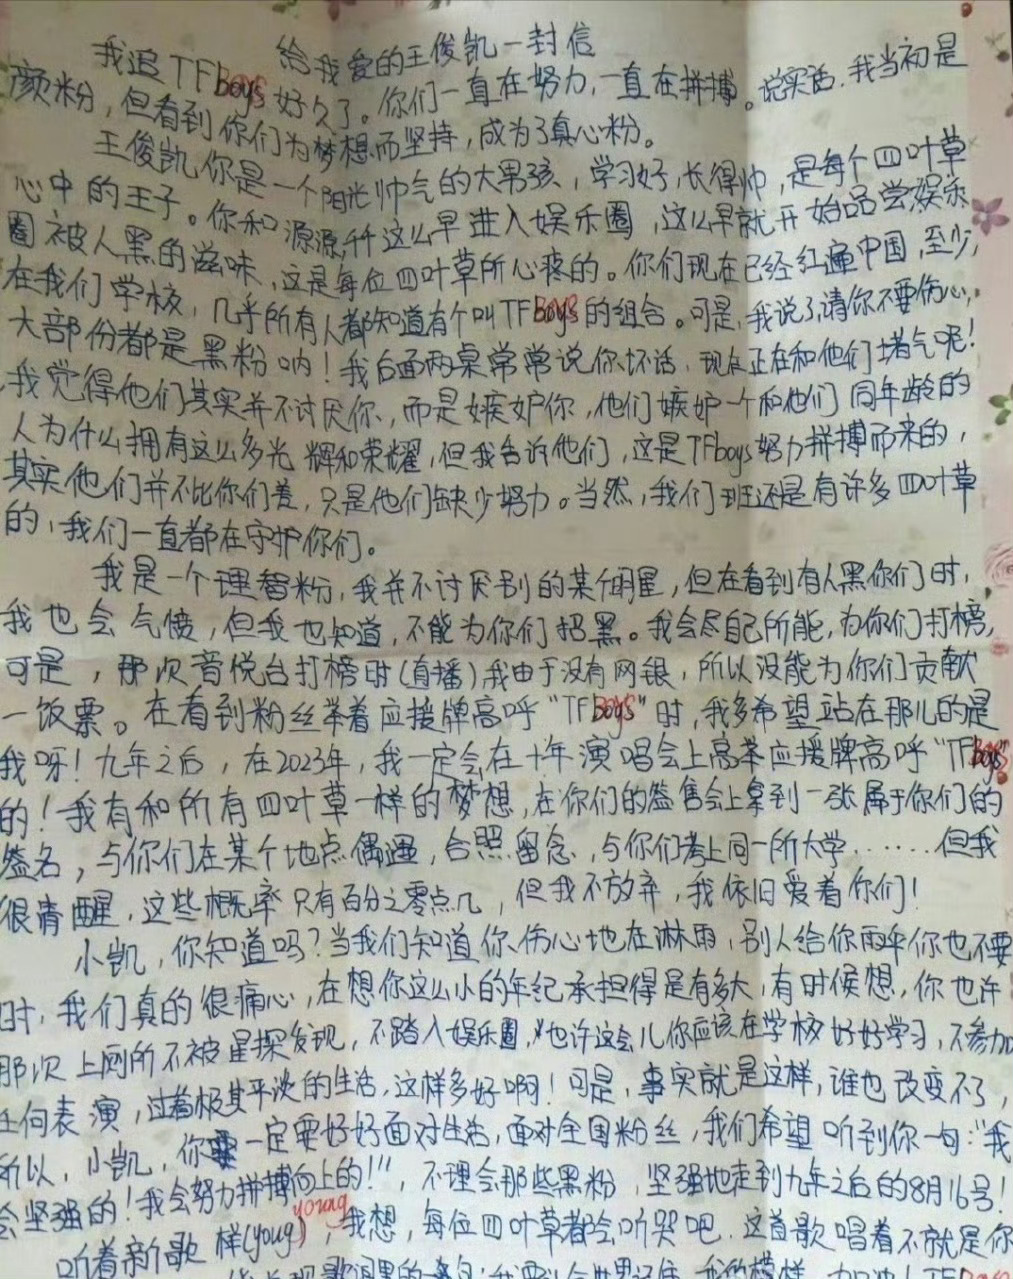 给我爱的王俊凯一封信
我追TFboys好久了。你们一直在努力，一直在拼搏。说实话，我当初是
颜粉，但看到你们为梦想而坚持，成为了真心粉。
王俊凯，你是一个阳光帅气的大男孩，学习好，长得帅，是每个四叶草
心中的王子。你和源源，千千这么早进入娱乐圈，这么早就开始品尝娱乐
圈被人黑的滋味，这是每位四叶草所心疼的。你们现在已经红遍中国，至少，
在我们学校，几乎所有人都知道有个叫TFboys的组合。可是，我说了请你不要伤心，
大部份都是黑粉呐！我后面两桌常常说你坏话，现在正在和他们堵气呢！
我觉得他们其实并不讨厌你，而是嫉妒你，他们嫉妒一个和他们同年龄的
人为什么拥有这么多光辉和荣耀，但我告诉他们，这是TFboys努力拼搏而来的，
其实他们并不比你们差，只是他们缺少努力。当然，我们班还是有许多四叶草
的，我们一直都在守护你们。
我是一个理智粉，我并不讨厌别的某个明星，但在看到有人黑你们时，
我也会气愤，但我也知道，不能为你们招黑。我会尽自己所能，为你们打榜，
可是，那次音悦台打榜时（直播）我由于没有网银，所以没能为你们贡献
一饭票。在看到粉丝举着应援牌高呼“TFboys”时，我多希望站在那儿的是
我呀！九年之后，在2023年，我一定会在十年演唱会上高举应援牌高呼“TFboys”
的！我有和所有四叶草一样的梦想，在你们的签售会上拿到一张属于你们的
签名，与你们在某个地点偶遇，合照留念，与你们考上同一所大学……但我
很清醒，这些概率只有百分之零点几，但我不放弃，我依旧爱着你们！
小凯，你知道吗？当我们知道你伤心地在淋雨，别人给你雨伞你也不要
时，我们真的很痛心，在想你这么小的年纪承担得是有多大，有时候想，你也许
那次上厕所不被星探发现，不踏入娱乐圈，也许这会儿你应该在学校好好学习，不参加
任何表演，过着极其平淡的生活，这样多好啊！可是，事实就是这样，谁也改变不了，
所以，小凯，你一定要好好面对生活，面对全国粉丝，我们希望听到你一句：“我
会坚强的！我会努力拼搏向上的！”，不理会那些黑粉，坚强地走到九年之后的8月16号！
听着新歌 样（young），我想，每位四叶草都会听哭吧，这首歌唱着不就是你